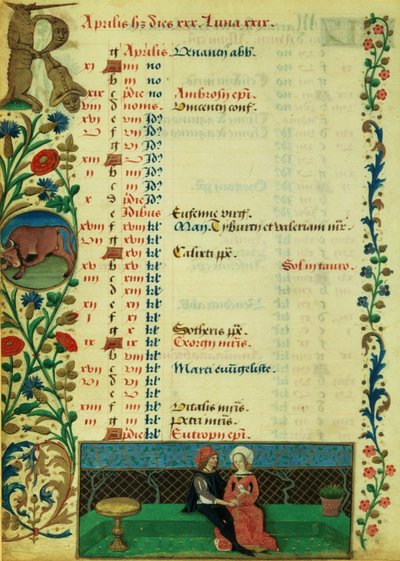 Aprilis hz dies xxx. Luna xxix.
g Aprilis Venantij abb.
xi A iiij no
b iij no
xix c pdie no Ambrosij epi.
viij d nonis. Vincentij conf.
xvi e viij Id9
v f vij Id9
g vi Id9
xiij A v Id9
ij b iiij Id9
c iij Id9
x d pdie Id9
e Idibus Eufemie virg.
xviij f xviij kl May. Tyburtij et valeriani mr.
vij g xvij kl
A xvi kl Calixti pp.
xv b xv kl Sol in tauro.
iiij c xiiij kl
d xiij kl
xij e xij kl
i f xi kl
g x kl Sotheris pp.
ix A ix kl Georgij mris.
b viij kl
xvij c vij kl Marci evangeliste.
vi d vi kl
e v kl
xiiij f iiij kl Vitalis mris.
iij g iij kl Petri mris.
A pdie kl Eutropij epi.